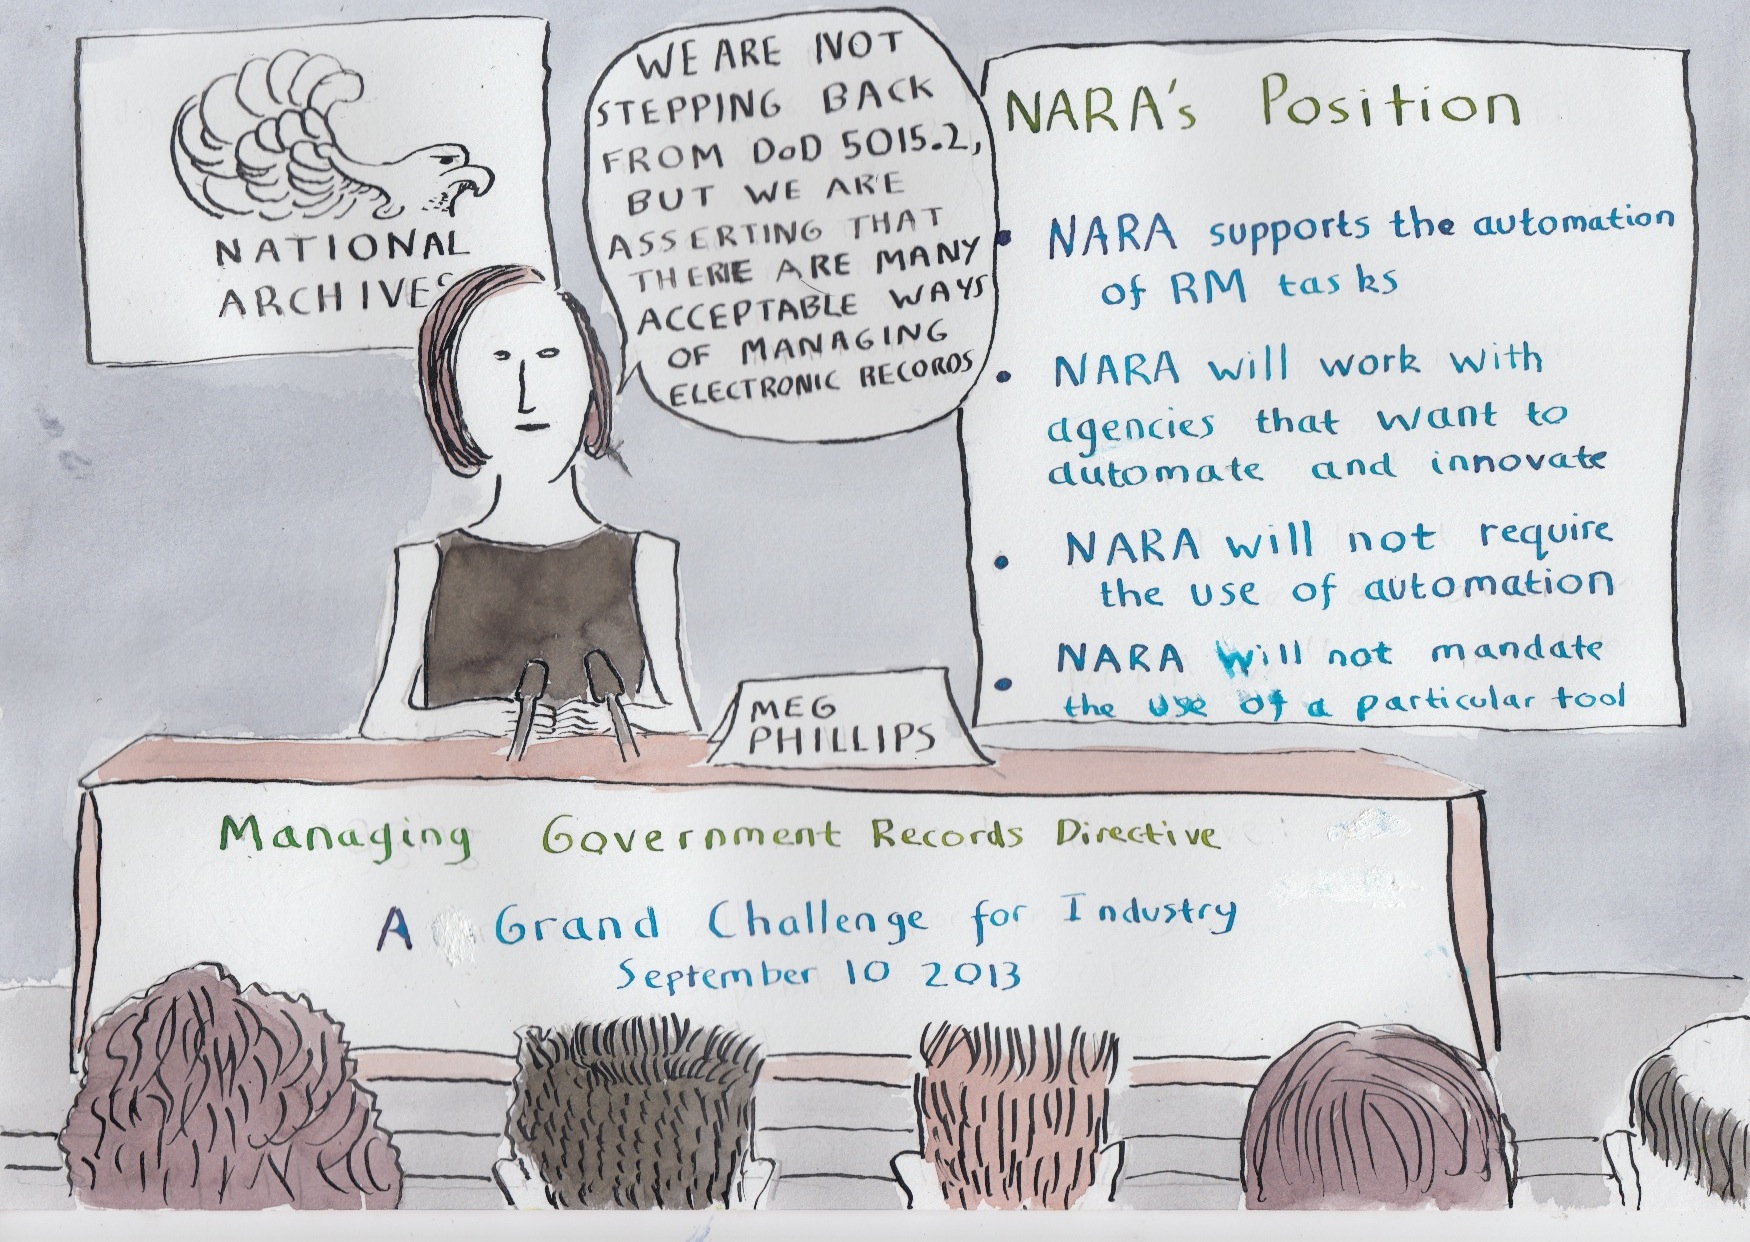 NATIONAL
ARCHIVES
WE ARE NOT
STEPPING BACK
FROM DoD 5015.2,
BUT WE ARE
ASSERTING THAT
THERE ARE MANY
ACCEPTABLE WAYS
OF MANAGING
ELECTRONIC RECORDS
NARA's Position
• NARA supports the automation
of RM tasks
• NARA will work with
agencies that want to
automate and innovate
• NARA will not require
the use of automation
• NARA will not mandate
the use of a particular tool
MEG
PHILLIPS
Managing Government Records Directive
A Grand Challenge for Industry
September 10 2013